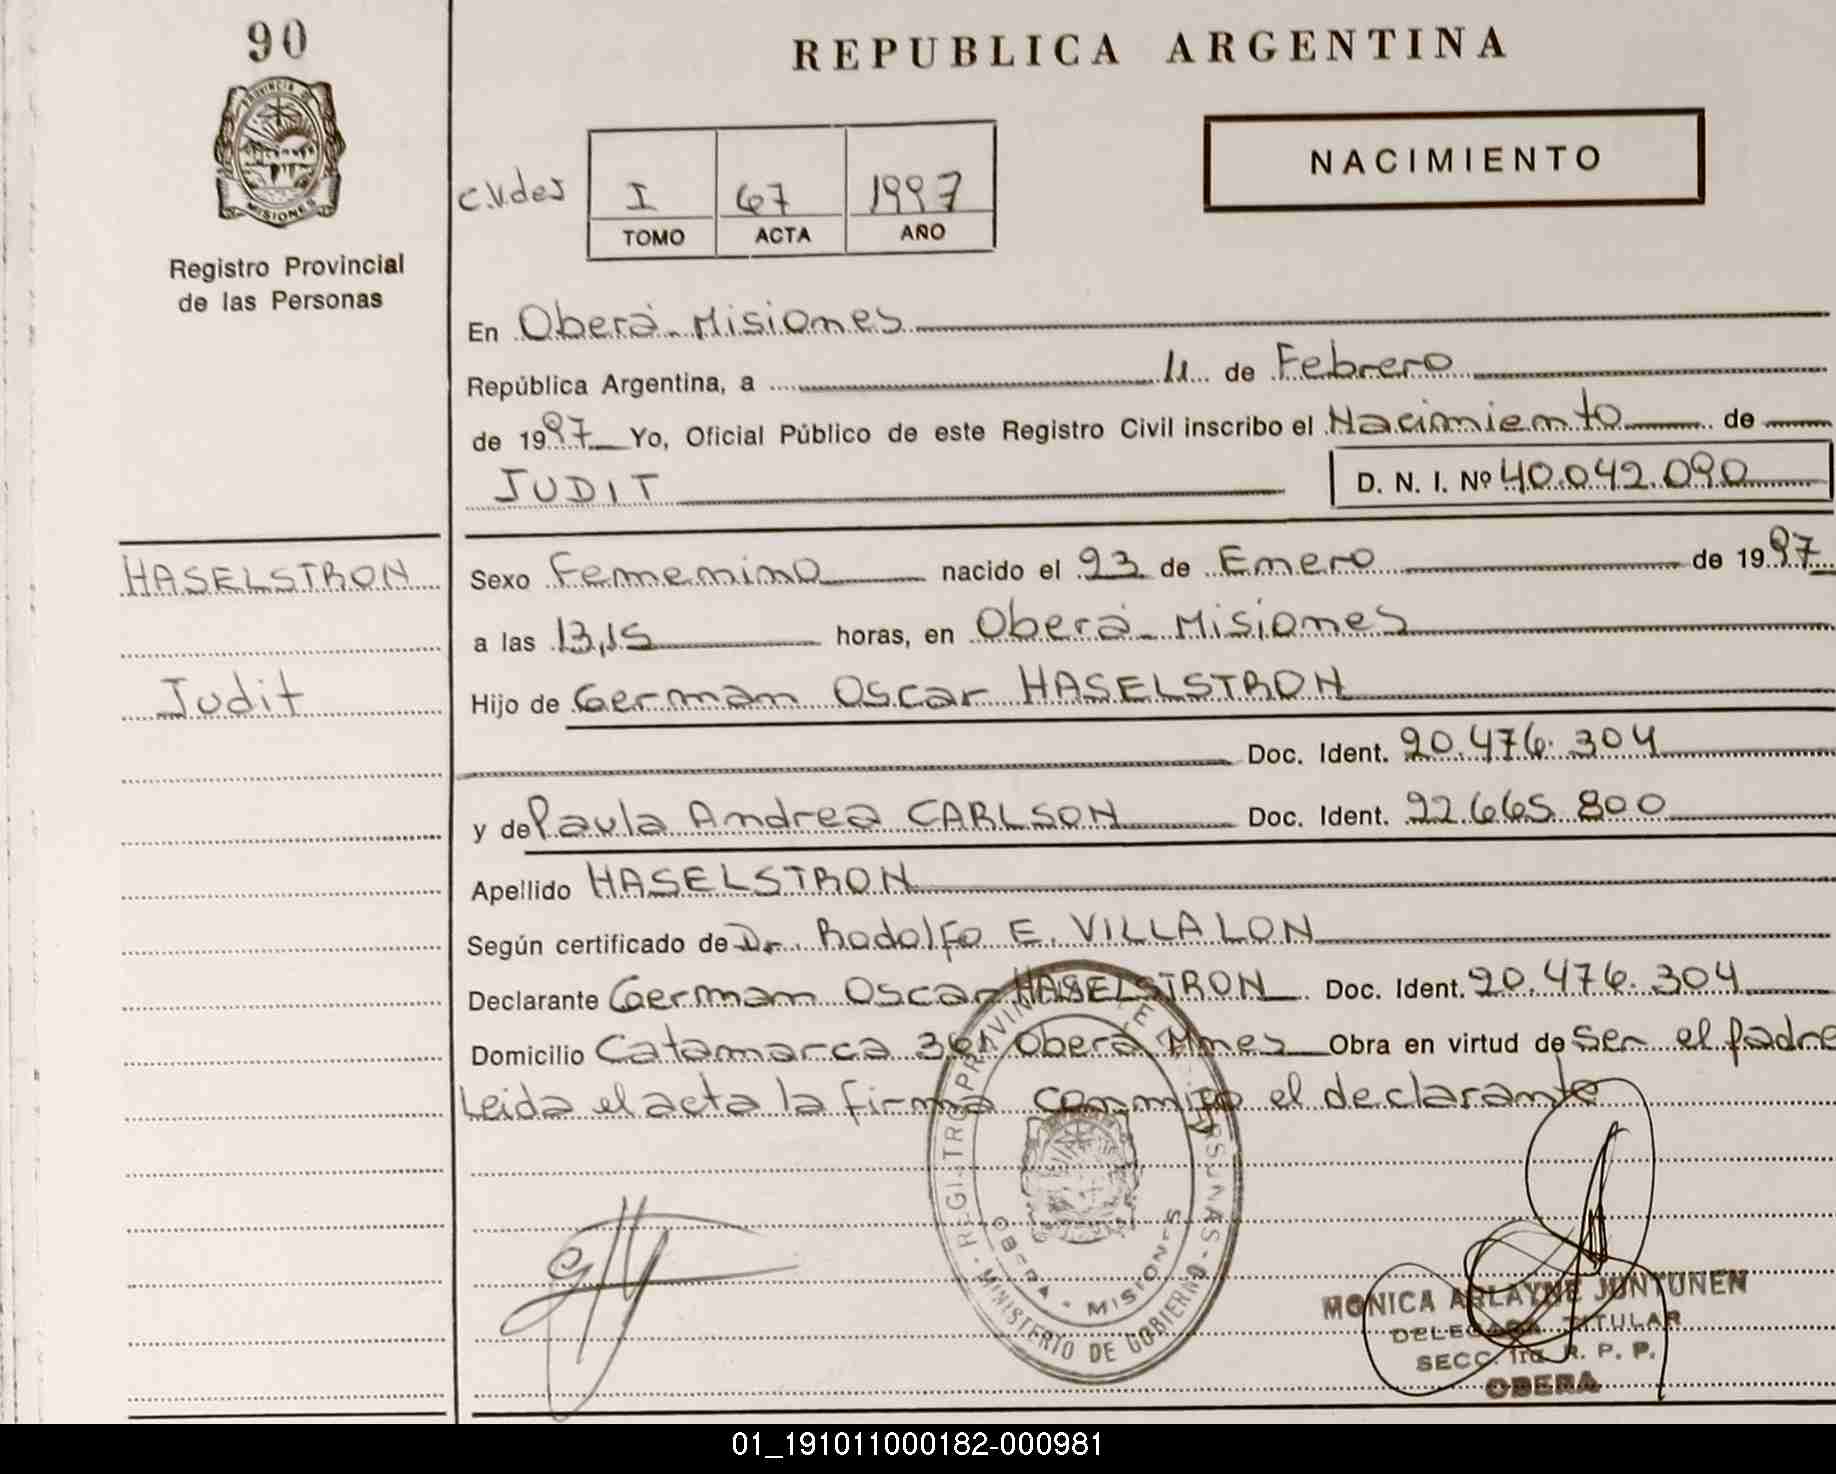 90
REPUBLICA ARGENTINA
PROVINCIA DE
MISIONES
NACIMIENTO
I 67 1997
TOMO ACTA AÑO
Registro Provincial
de las Personas
En Oberá - Misiones
República Argentina, a 11 de Febrero
de 1997 Yo, Oficial Público de este Registro Civil inscribo el Nacimiento de
JUDIT D. N. I. Nº 40.042.090
HASELSTRON
Judit
Sexo Femenino nacido el 23 de Enero de 1997
a las 13,15 horas, en Oberá - Misiones
Hijo de German Oscar HASELSTRON
Doc. Ident. 20.476.304
y de Paula Andrea CARLSON Doc. Ident. 22.665.800
Apellido HASELSTRON
Según certificado de Dr. Rodolfo E. VILLALON
Declarante German Oscar HASELSTRON Doc. Ident. 20.476.304
Domicilio Catamarca 361 Oberá Mnes Obra en virtud de ser el padre
Leida el acta la firma conmigo el declarante
REGISTRO PROVINCIAL DE LAS PERSONAS - MINISTERIO DE GOBIERNO
OBERA - MISIONES
MONICA ARLAYNE JUNTUNEN
DELEGADA TITULAR
SECC. 1ra R. P. P.
OBERA
01_191011000182-000981